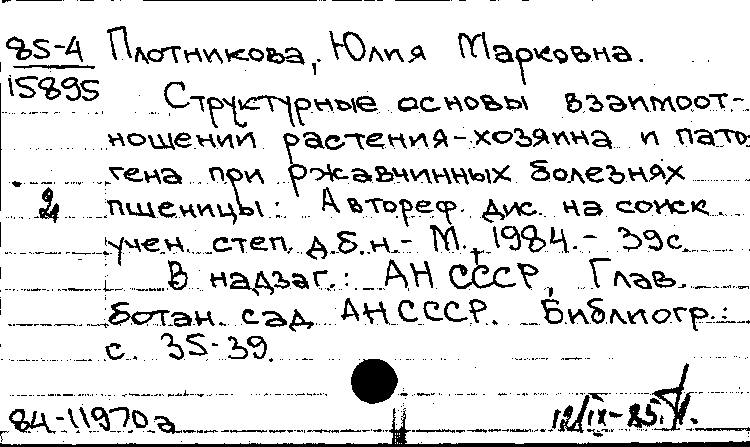 85-4 Плотникова, Юлия Марковна.
15895
Структурные основы взаимоот-
ношений растения-хозяина и пато
гена при ржавчинных болезнях
2
пшеницы: Автореф. дис. на соиск.
учен. степ. д.б.н.- М., 1984.- 39с.
В надзаг.: АН СССР, Глав.
ботан. сад АН СССР. Библиогр.:
с. 35-39.
84-11970а
12/IX-85.